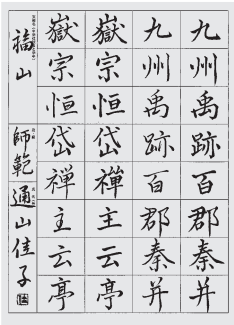 九州禹跡百郡秦并
九州禹跡百郡秦并
嶽宗恒岱禅主云亭
嶽宗恒岱禪主云亭
福山
師範
通山佳子